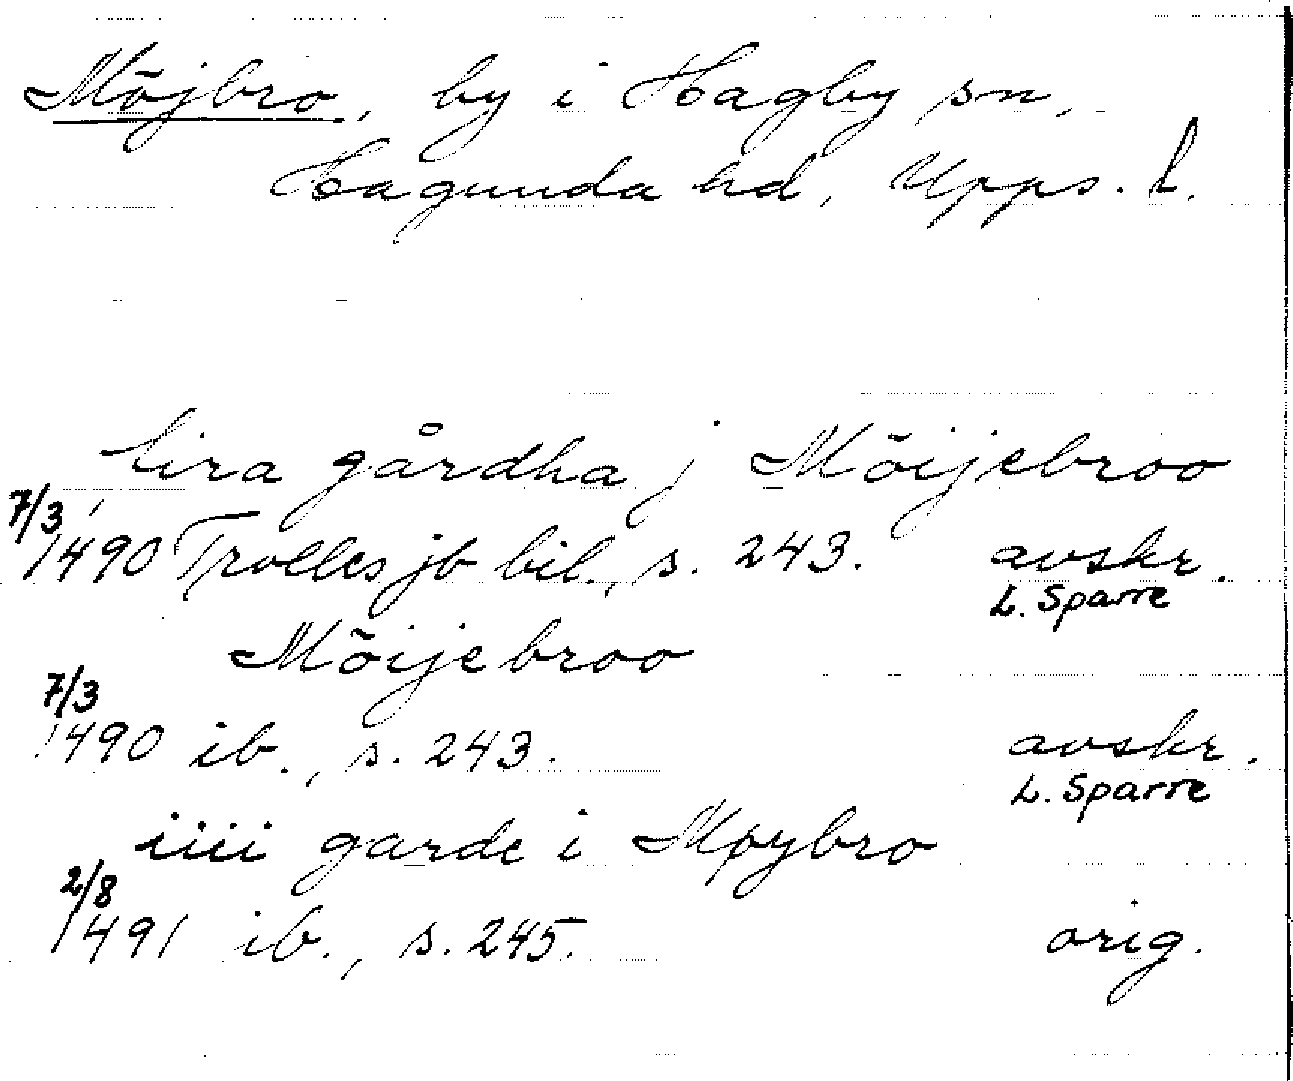 Möjbro, by i Hagby sn,
Hagunda hd, Upps. l.
tira gårdha j Möijebroo
7/3 1490 Trolles jb bil., s. 243. avskr.
L. Sparre
Möijebroo
7/3 1490 ib., s. 243. avskr.
L. Sparre
iiii garde i Møybro
2/8 1491 ib., s. 245. orig.